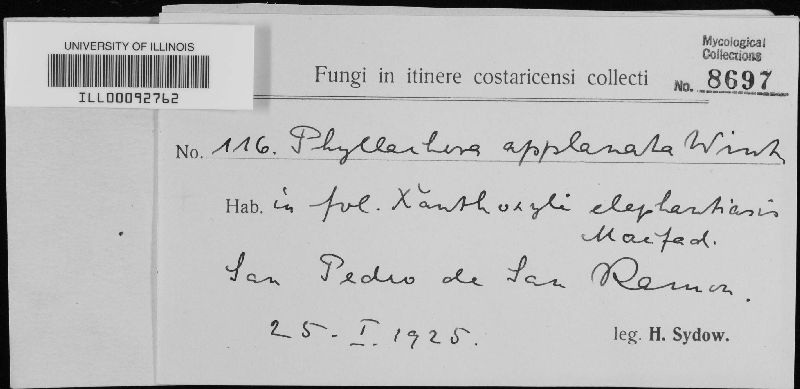 UNIVERSITY OF ILLINOIS
ILL00092762
Mycological
Collections
No. 8697
Fungi in itinere costaricensi collecti
No. 116. Phyllachora applanata Wint
Hab. in fol. Xanthoxyli elephantiasis
Macfad.
San Pedro de San Ramon.
25-I.1925.
leg. H. Sydow.